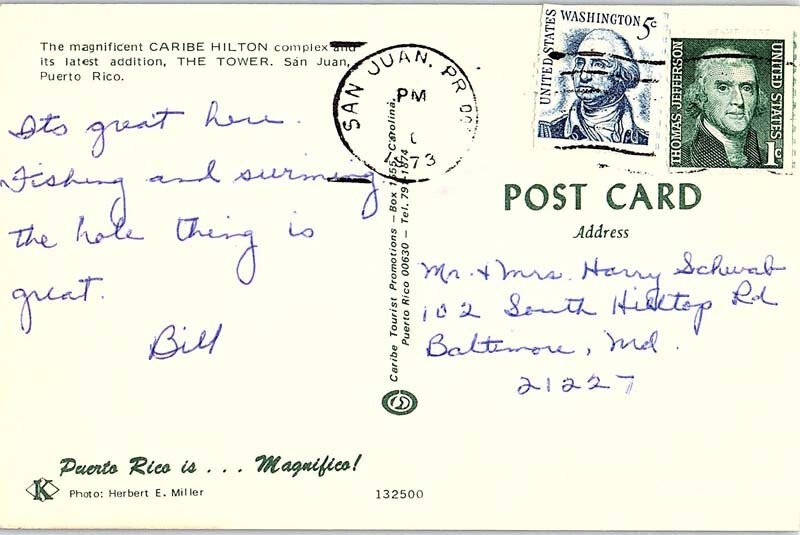 The magnificent CARIBE HILTON complex and
its latest addition, THE TOWER. San Juan,
Puerto Rico.
Its great here.
Fishing and swiming
the hole thing is
great.
Bill
Puerto Rico is . . . Magnifico!
K
Photo: Herbert E. Miller
132500
Caribe Tourist Promotions – Box 1855, Carolina,
Puerto Rico 00630 – Tel. 791-1874
SAN JUAN, PR 009
PM
1973
UNITED STATES
WASHINGTON 5c
THOMAS JEFFERSON
UNITED STATES
1c
POST CARD
Address
Mr. & Mrs. Harry Schwab
102 South Hilltop Rd
Baltimore, Md.
21227